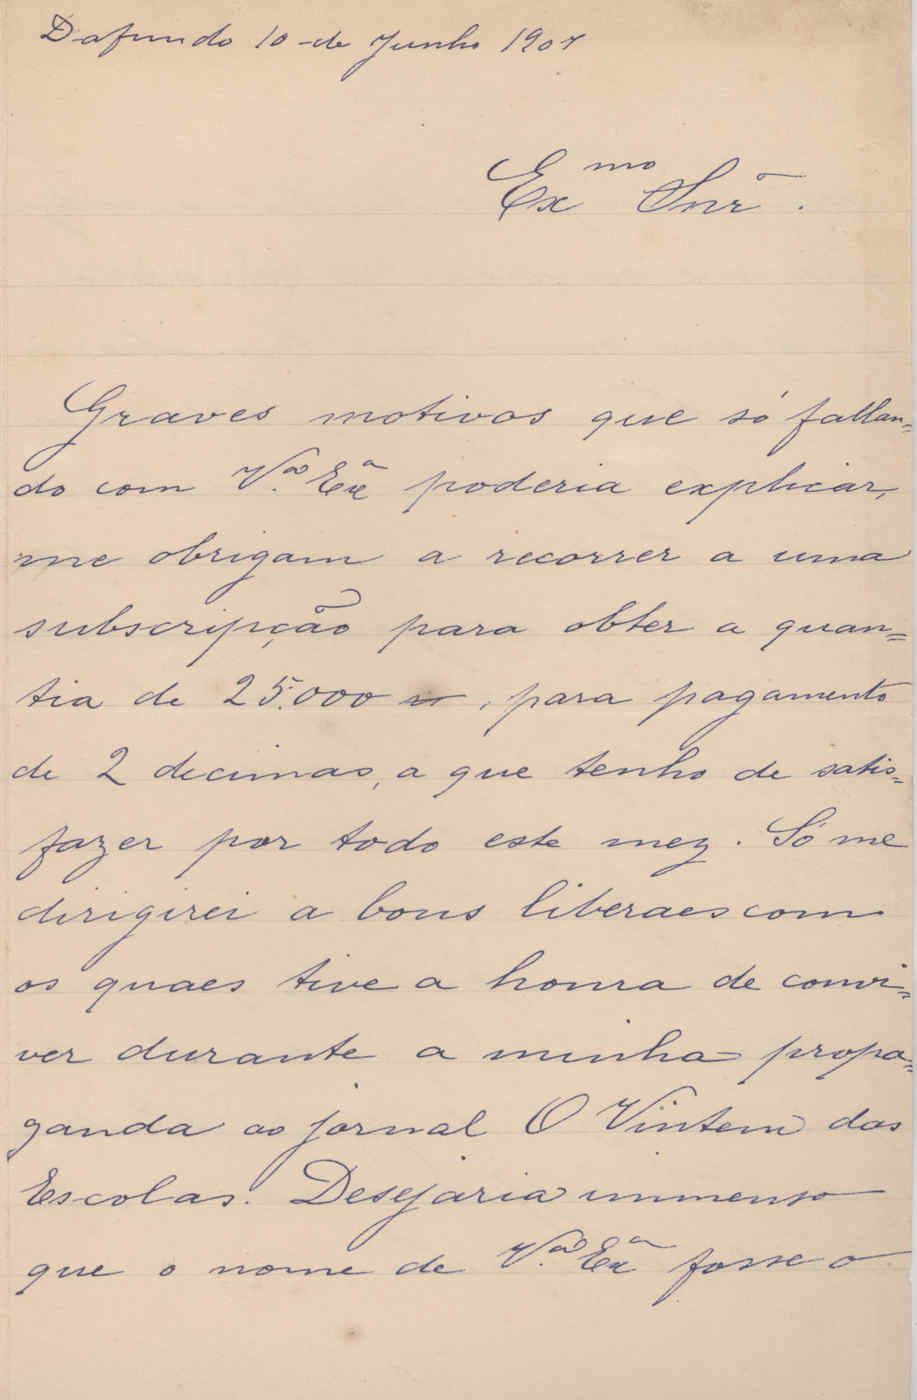 Dafundo 10 de Junho 1907
Exmo Snrº.
Graves motivos que só fallan=
do com V.ª Exª poderia explicar,
me obrigam a recorrer a uma
subscripção para obter a quan=
tia de 25.000 rs, para pagamento
de 2 decimas, a que tenho de satis=
fazer por todo este mez. Só me
dirigirei a bons liberaes com
os quaes tive a honra de convi=
ver durante a minha propa=
ganda ao jornal O Vintem das
Escolas. Desejaria immenso
que o nome de V.ª Exª fosse o